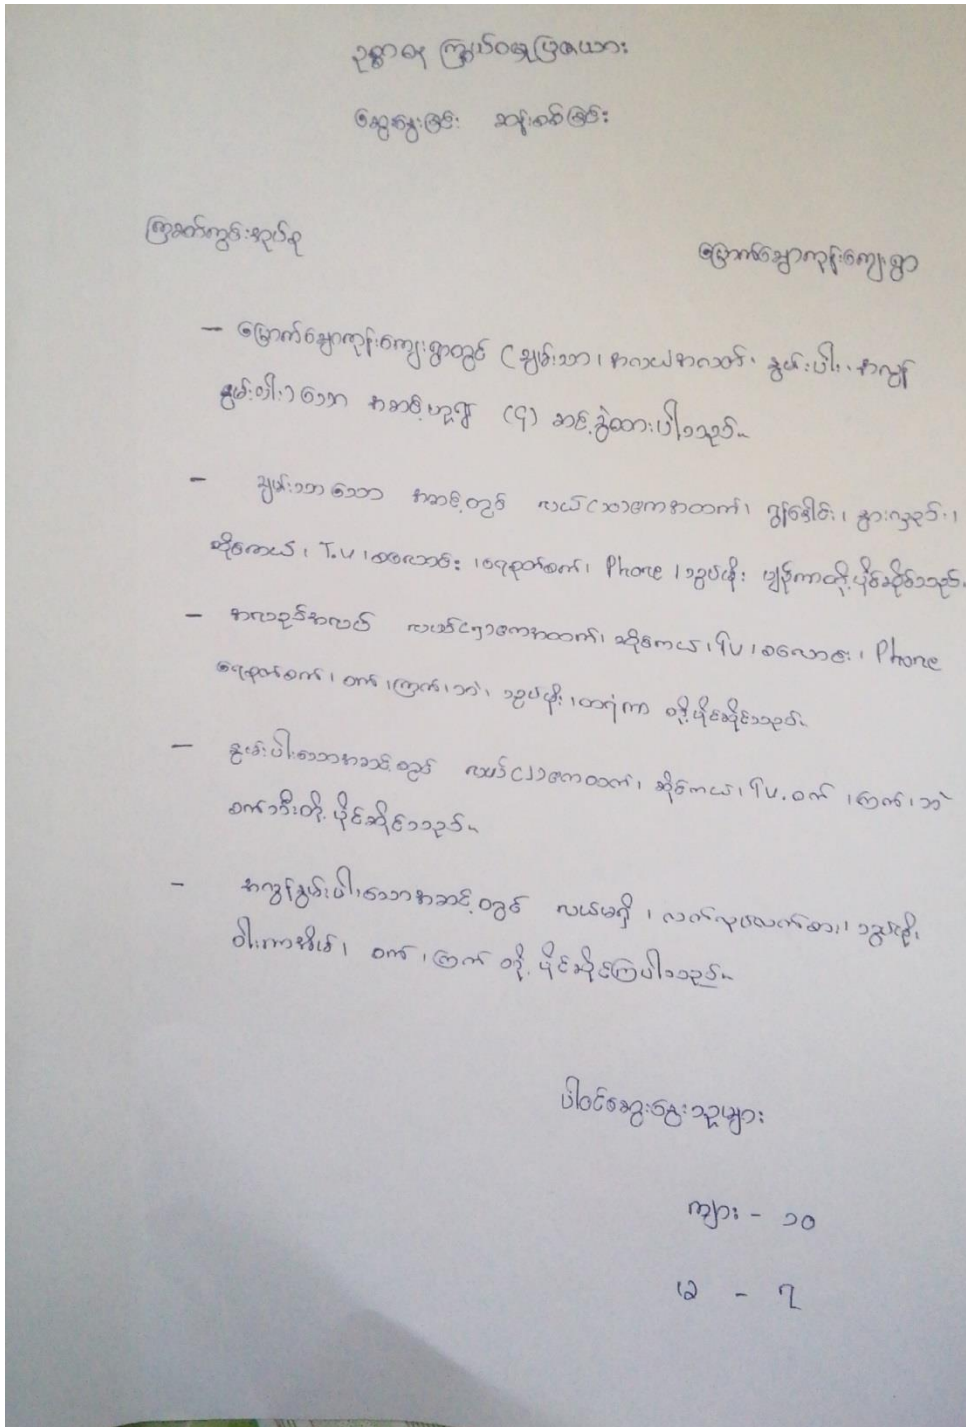 ဥစ္စာဓန ကြွယ်ဝမှုပြဇယား
ဆွေးနွေးခြင်း ဆန်းစစ်ခြင်း
ကြက်ကွင်းအုပ်စု
မြောက်ချောကုန်းကျေးရွာ
- မြောက်ချောကုန်းကျေးရွာတွင် (ချမ်းသာ၊ အလယ်အလတ်၊ နွမ်းပါး၊ အလွန်
နွမ်းပါး) သော အဆင့်ဟူ၍ (၄) ဆင့်ခွဲထားပါသည်။
- ချမ်းသာသော အဆင့်တွင် လယ် ၎ အထက်၊ နွားလှည်း၊
ဆိုင်ကယ်၊ T.V၊ စလောင်း၊ ရေစုတ်စက်၊ Phone၊ သွပ်မိုး ပျဉ်ကာတို့ပိုင်ဆိုင်သည်။
- အလယ်အလတ် အထက်၊ ဆိုင်ကယ်၊ TV၊ စလောင်း၊ Phone
ရေစုတ်စက်၊ ဝက်၊ ကြက်၊ ဘဲ၊ သွပ်မိုး၊ ထရံကာ တို့ပိုင်ဆိုင်သည်။
- နွမ်းပါးသောအဆင့်တွင် ဆိုင်ကယ်၊ TV. ဝက်၊ ကြက်၊ ဘဲ
စက်ဘီးတို့ ပိုင်ဆိုင်သည်။
- အလွန်နွမ်းပါးသောအဆင့်တွင် လယ်မရှိ၊ လက်လုပ်လက်စား၊
ဝါးကာအိမ်၊ ဝက်၊ ကြက် တို့ ပိုင်ဆိုင်ကြပါသည်။
ပါဝင်ဆွေးနွေးသူများ
ကျား - ၁၀
မ - ၇